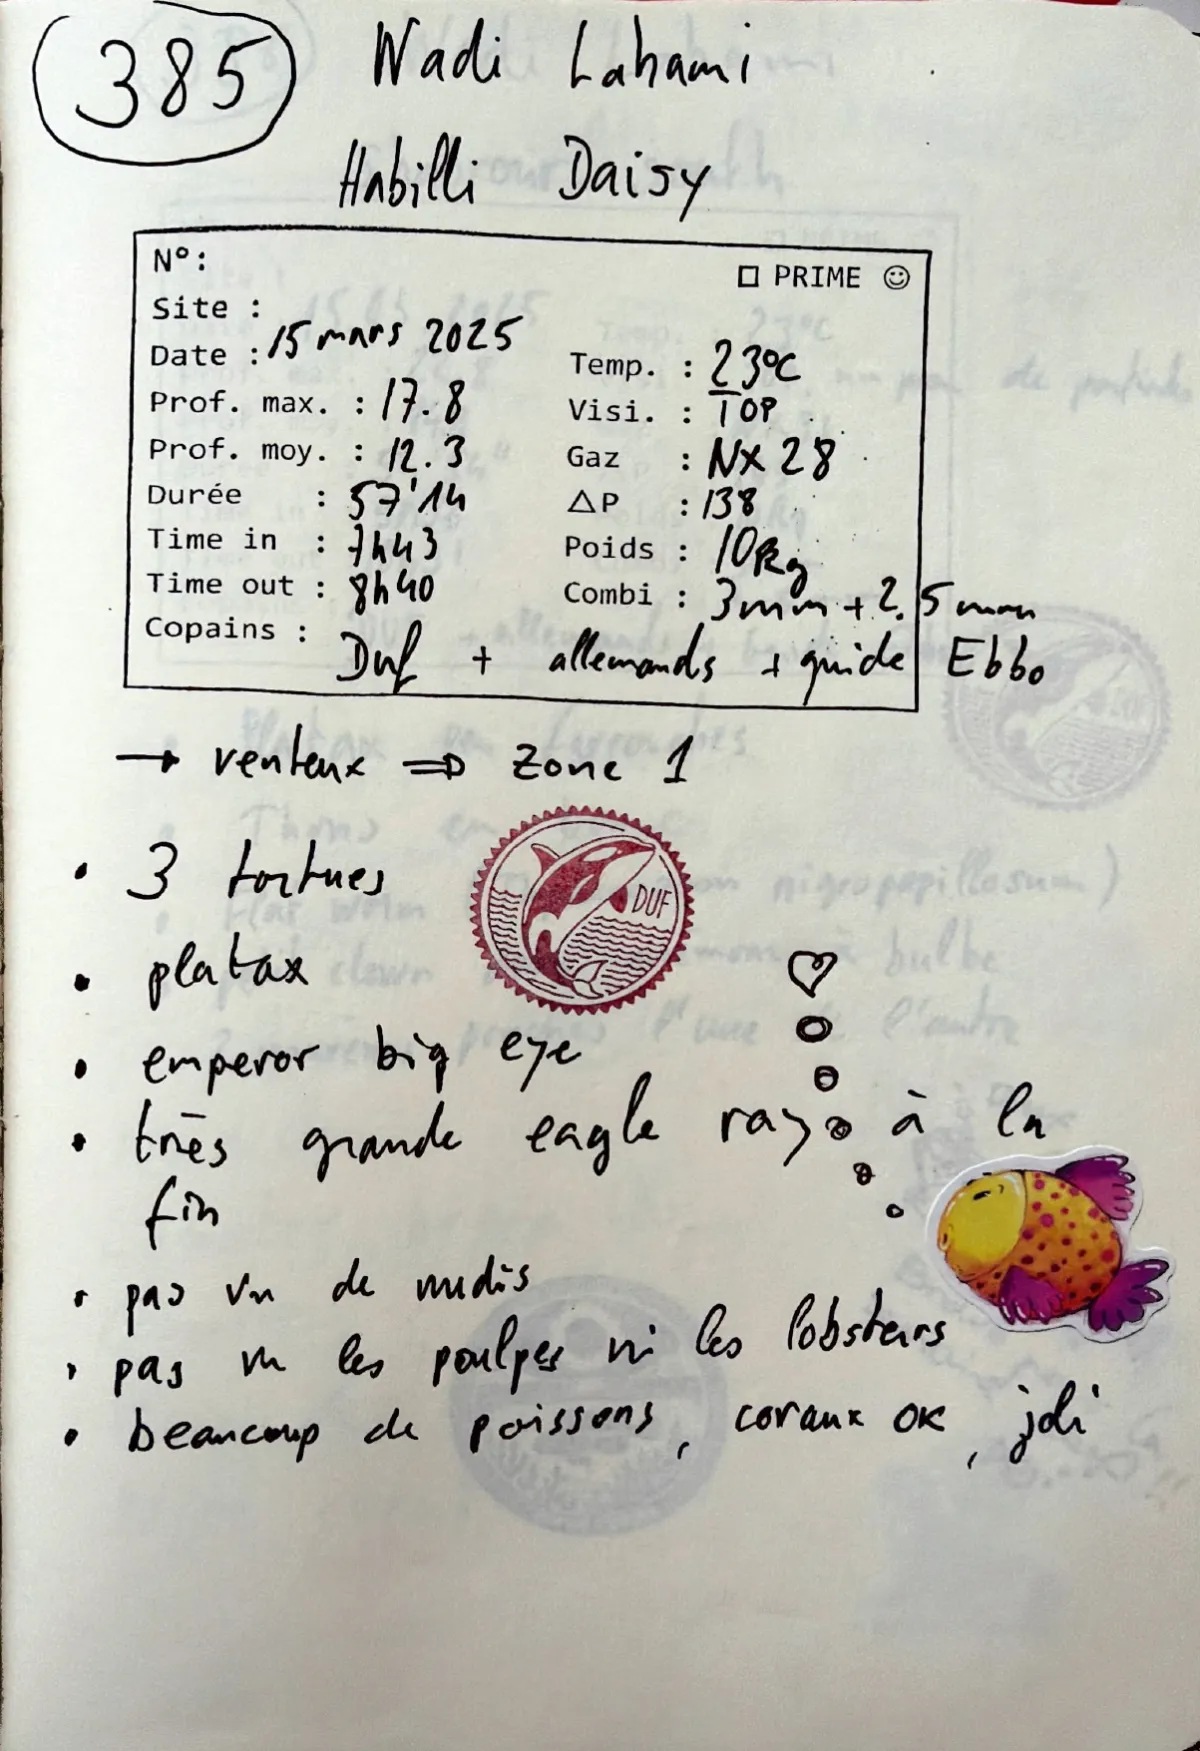 385
Wadi Lahami
Habilli Daisy
N°:
□ PRIME ☺
Site :
Date : 15 mars 2025
Prof. max. : 17.8
Prof. moy. : 12.3
Durée : 57'14
Time in : 7h43
Time out : 8h40
Temp. : 23°C
Visi. : TOP
Gaz : NX 28
△P : 138
Poids : 10kg
Combi : 3mm + 2.5 mm
Copains : Duf + allemands + guide Ebbo
→ venteux ⇒ Zone 1
• 3 tortues
DUF
• platax
• emperor big eye
• très grande eagle ray à la
fin
• pas vu de nudis
• pas vu les poulpes ni les lobsters
• beaucoup de poissons, coraux OK, joli